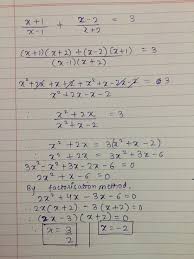 x+1/x-1 + x-2/x+2 = 3
(x+1)(x+2) + (x-2)(x-1) = 3
(x-1)(x+2)
x²+2x+x+2+x²-x-2x+2 = 3
x²+2x-x-2
x²+2x = 3
x²+x-2
x²+2x = 3(x²+x-2)
x²+2x = 3x²+3x-6
3x²-x²+3x-2x-6=0
2x²+x-6=0
By factorisation method,
2x²+4x-3x-6=0
2x(x+2)-3(x+2)=0
(2x-3)(x+2)=0
x=3/2 x=-2